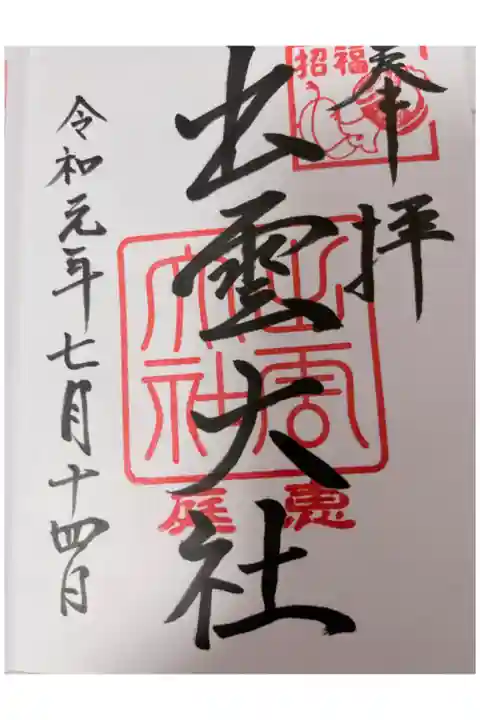 奉拝
招福
出雲大社
出雲大社
恵庭
令和元年七月十四日